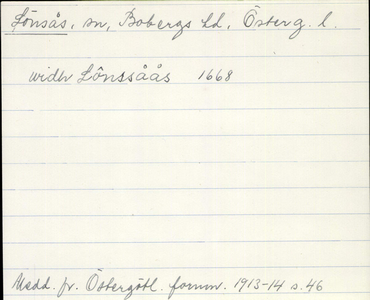 Lönsås, sn, Bobergs hd, Österg. l.
widh Lönssåås 1668
Medd. fr. Östergötl. fornm. 1913-14 s. 46